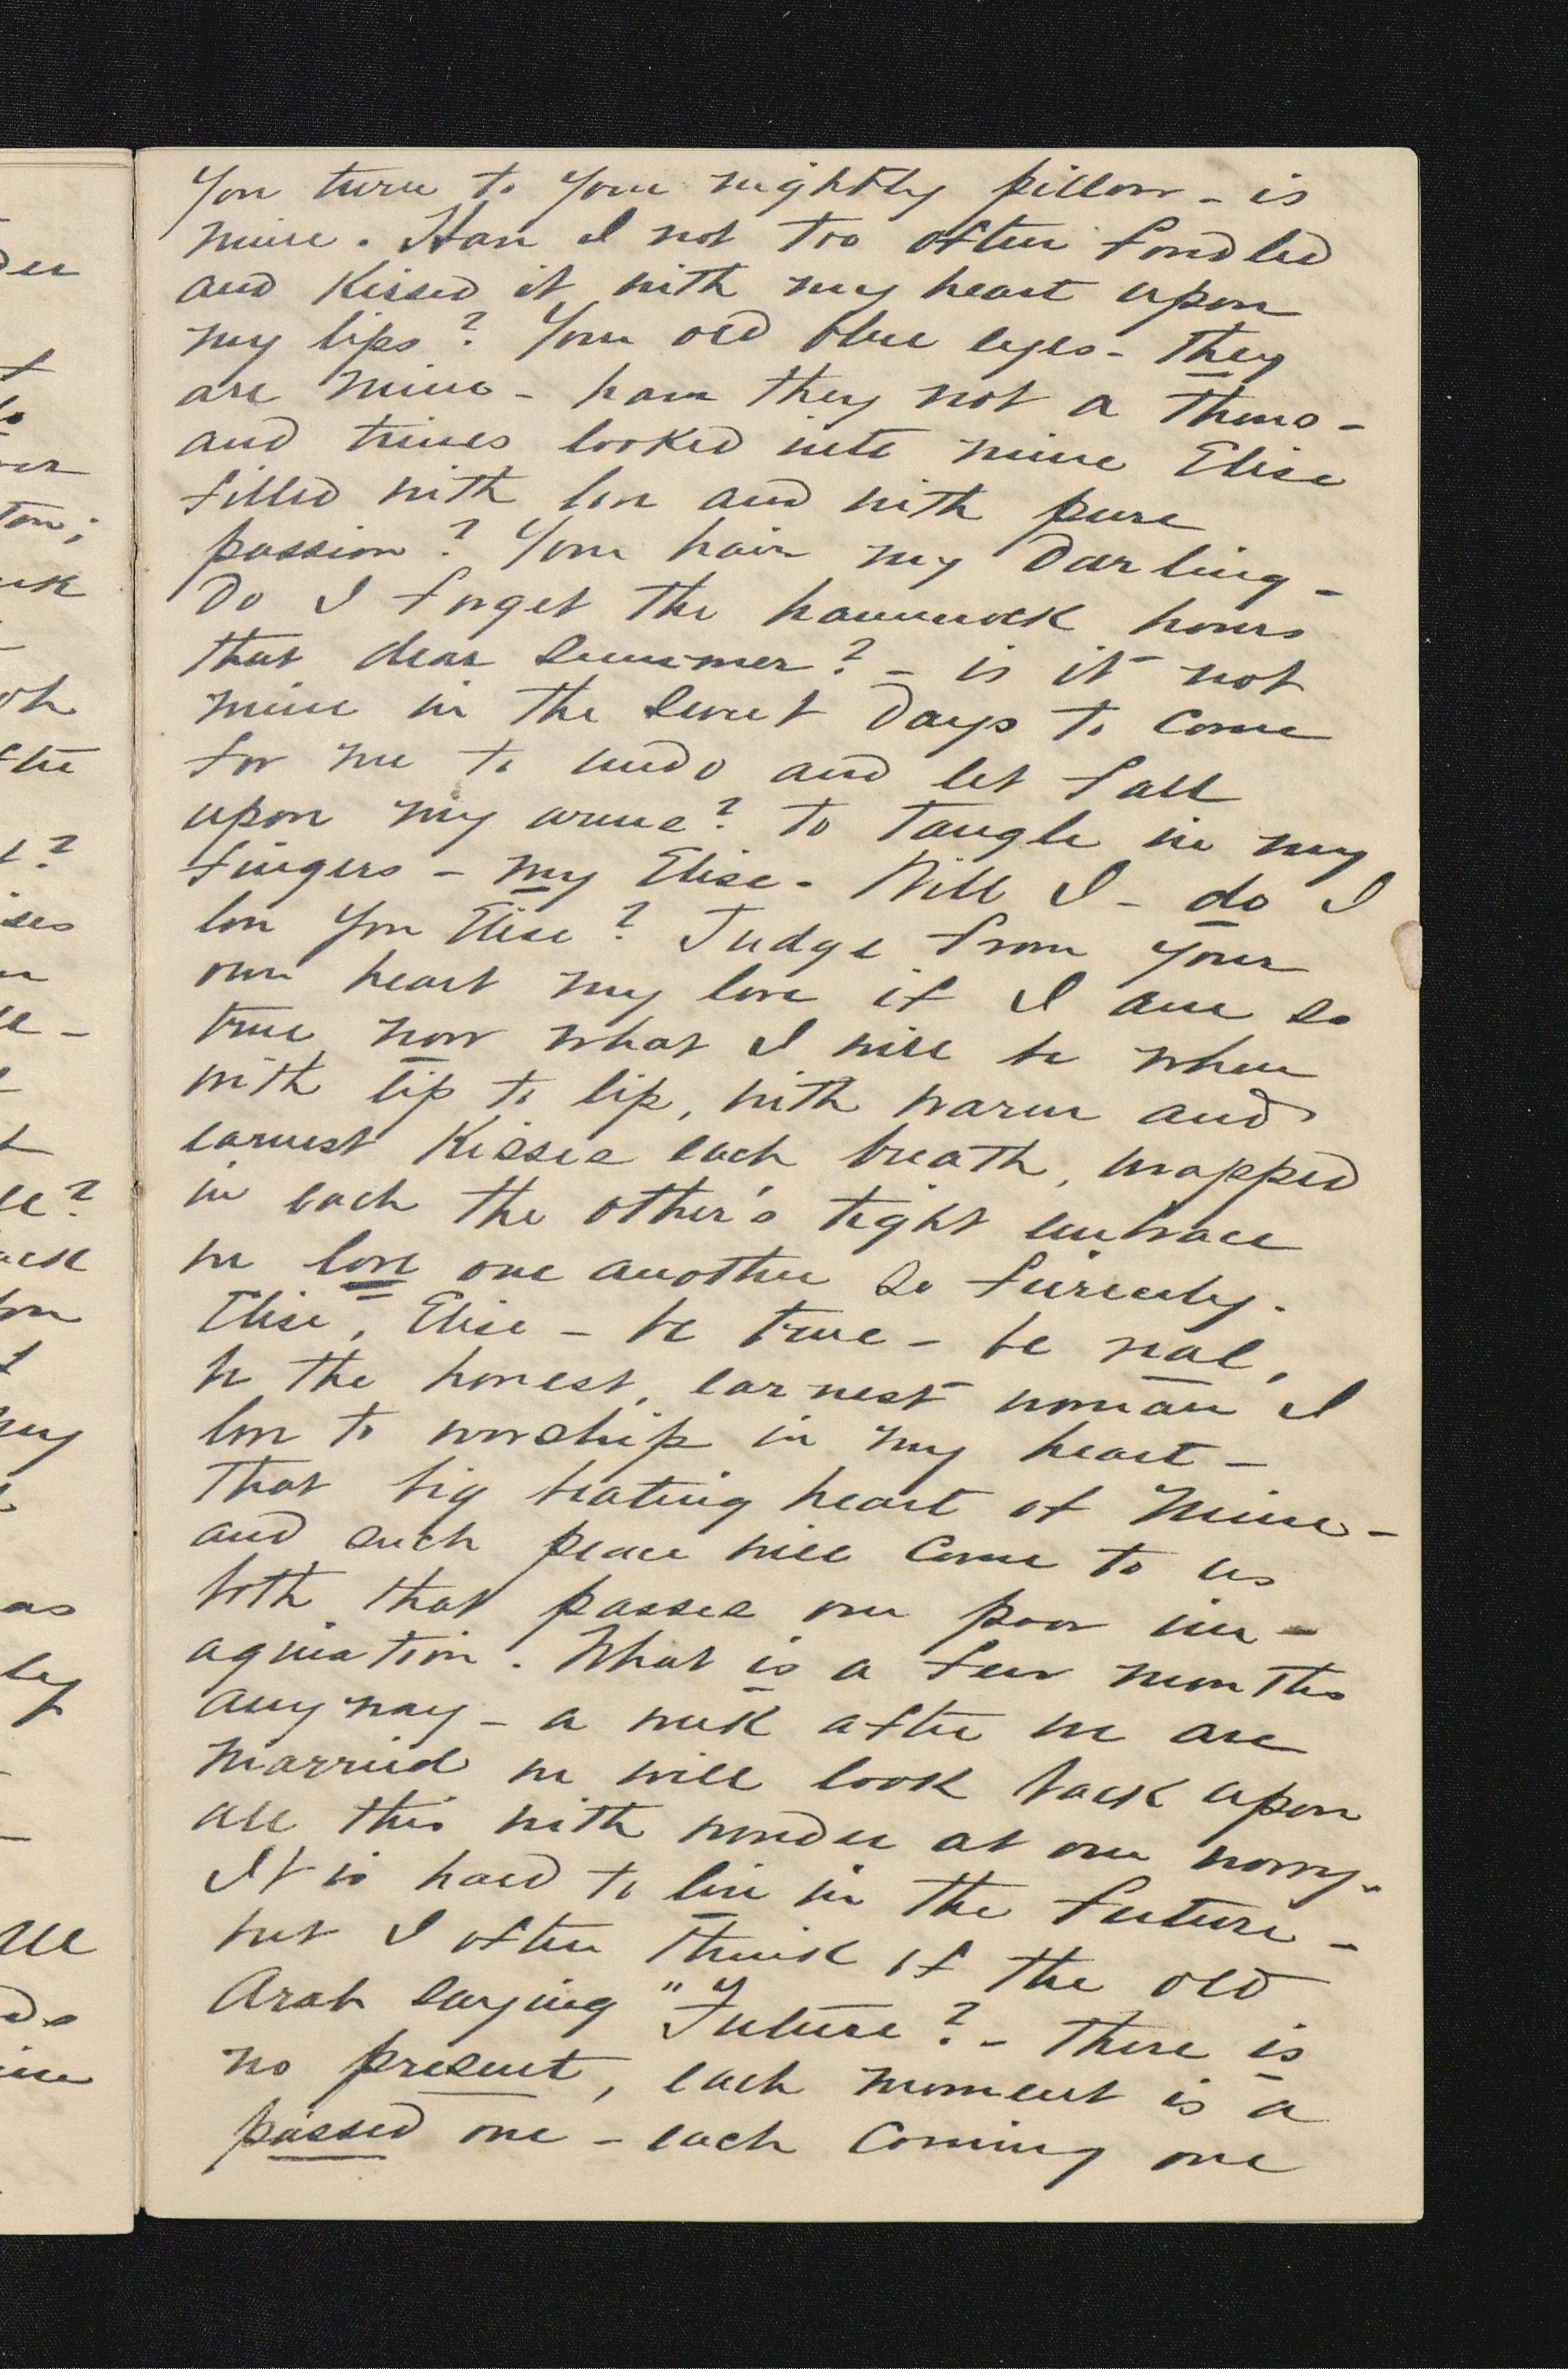 you turn to your nightly pillow - is
mine. Have I not too often fondled
and kissed it with my heart upon
my lips? Your old blue eyes - they
are mine - have they not a thous-
and times looked into mine Elise
filled with love and with pure
passion? Your hair my darling -
Do I forget the hammock hours
that dear summer? - is it not
mine in the sweet days to come
for me to undo and let fall
upon my arms? to tangle in my
fingers - my Elise. Will I - do I
love you Elise? Judge from your
own heart my love if I am so
true now what I will be when
with lip to lip, with warm and
earnest kisses each breath, wrapped
in each the other's tight embrace
we love one another so fiercely.
Elise, Elise - be true - be real,
be the honest, earnest woman I
love to worship in my heart -
that big beating heart of mine -
and such peace will come to us
both that passes our poor im-
agination. What is a few months
anyway - a week after we are
married we will look back upon
all this with wonder at our worry.
It is hard to live in the future -
but I often think of the old
Arab saying "Future? - There is
no present, each moment is a
passed one - each coming one